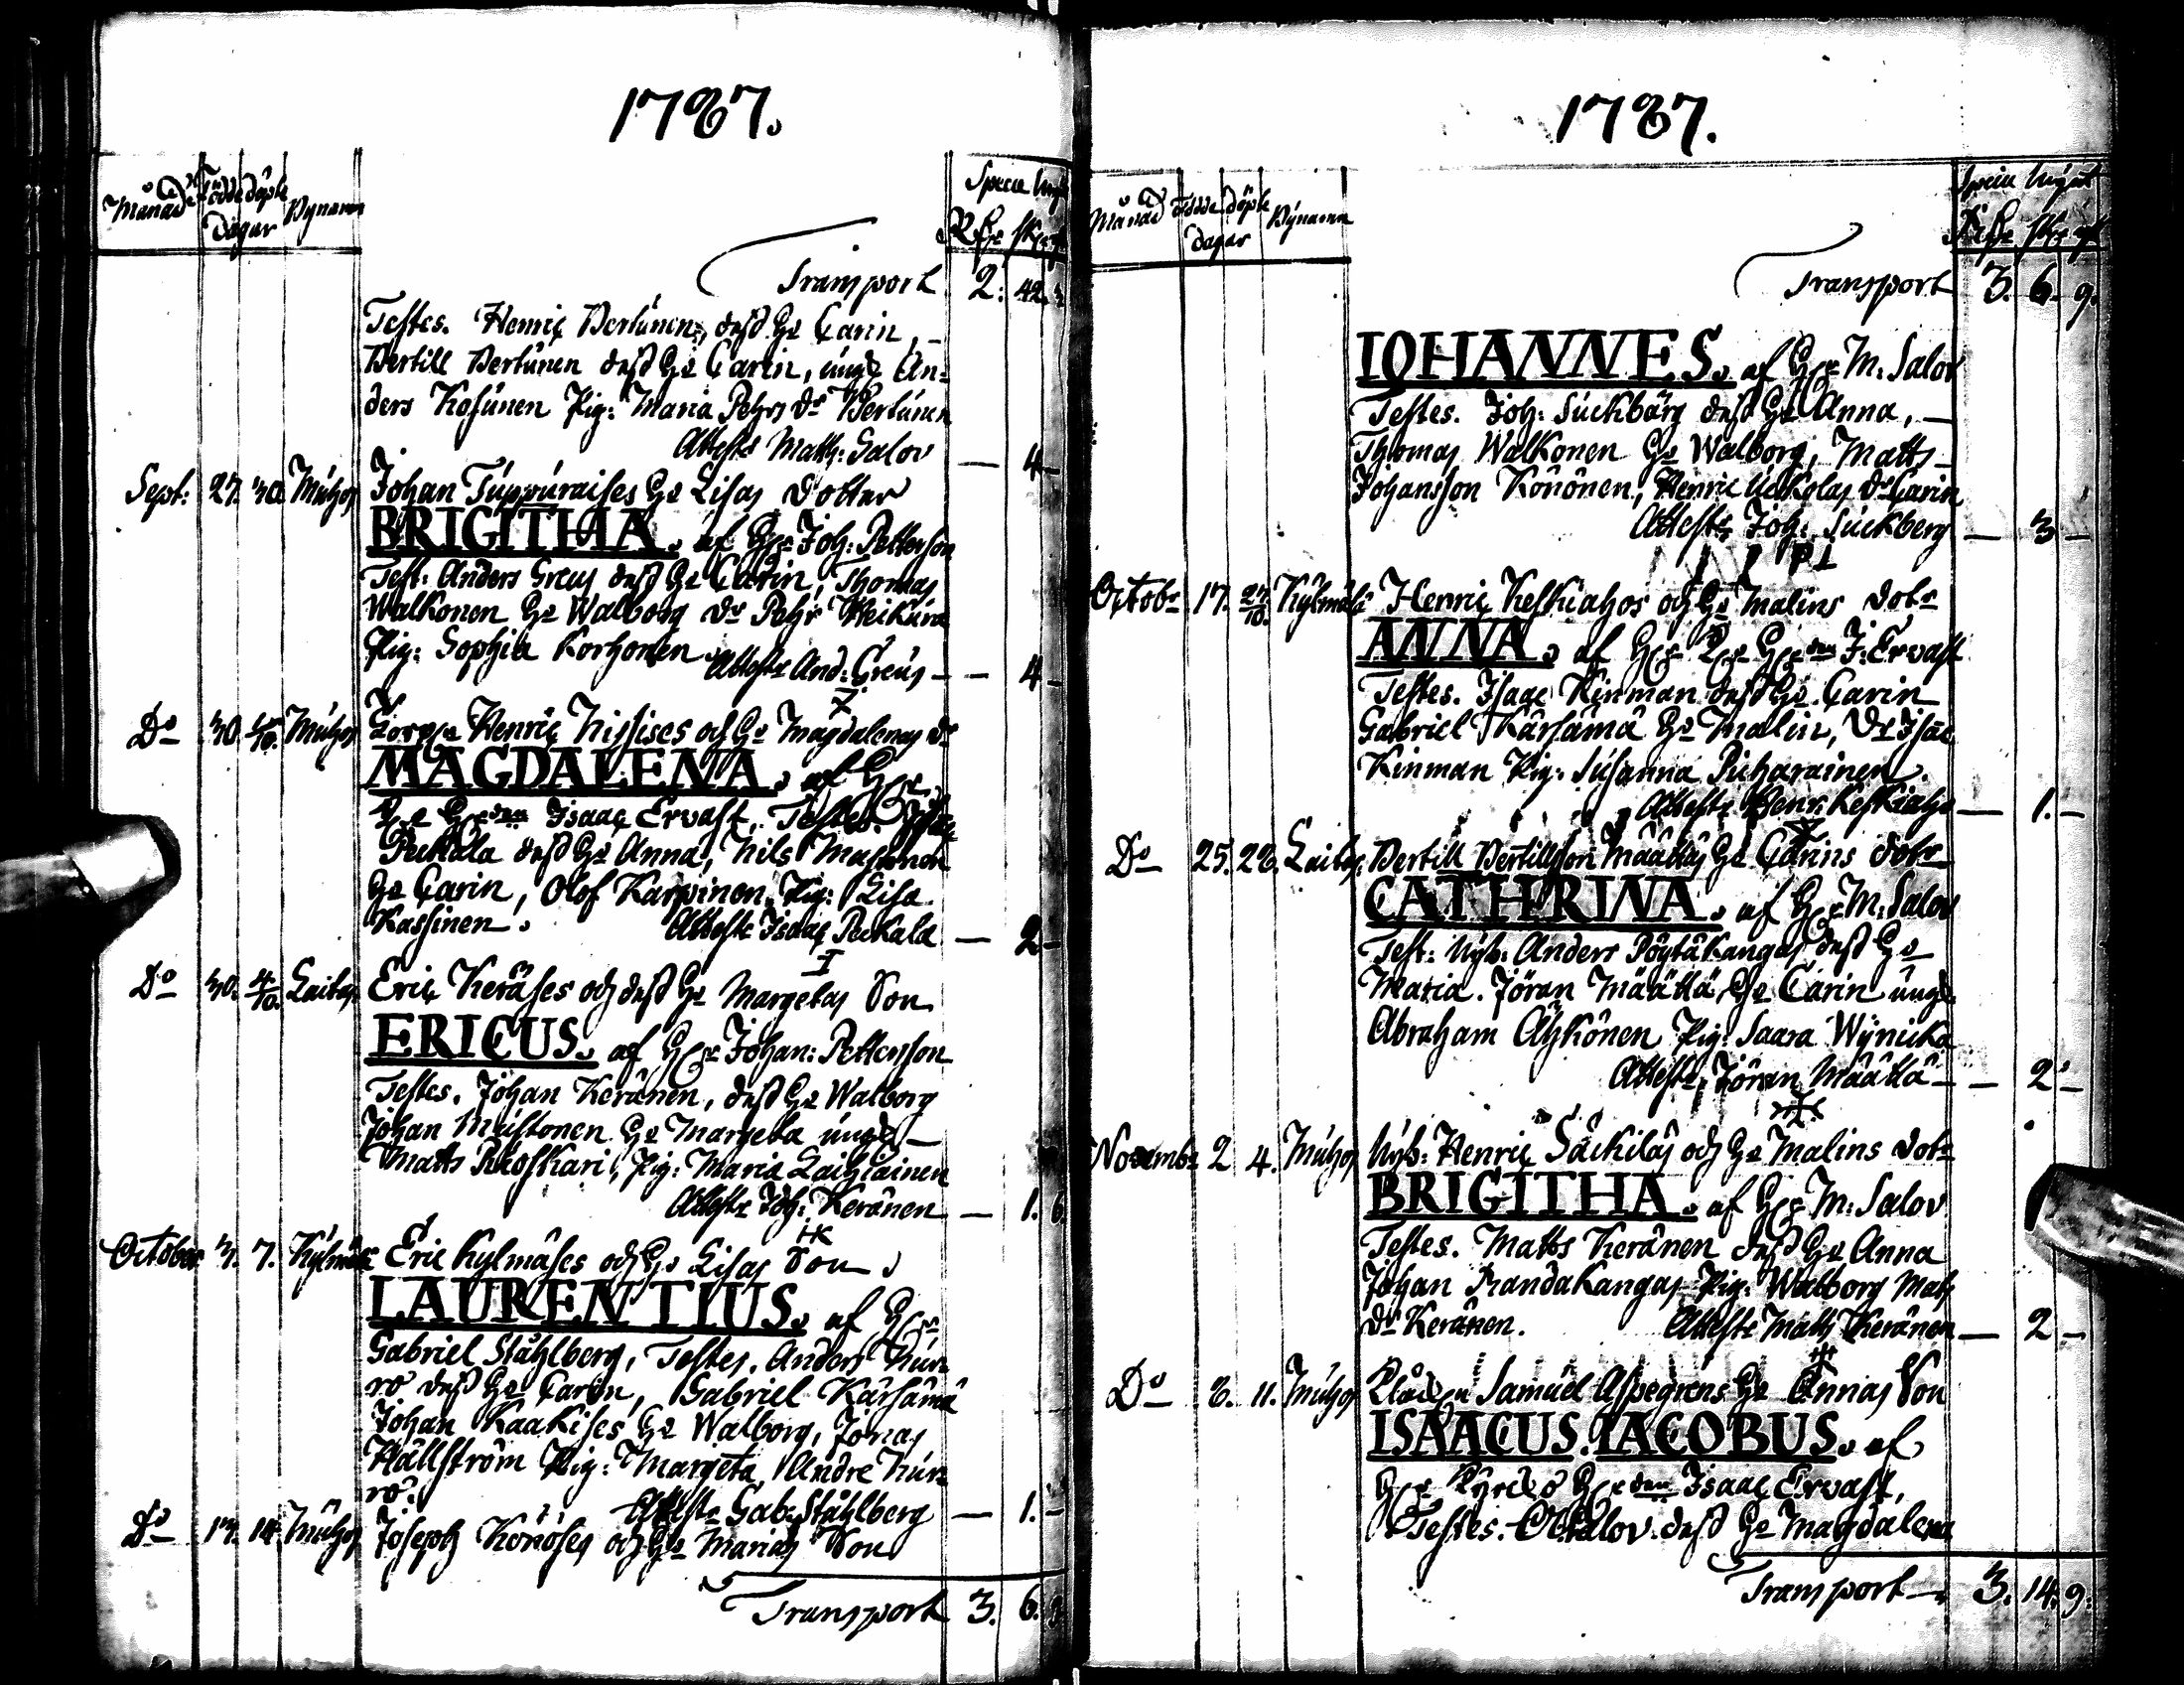 1787.
Månad Födde döpte Bynamn
Dagar
Specie
Rdr sk
Transport 2. 42.
Testes. Henric Bertunen, dess Ho Carin,
Bertill Bertunen dess Ho Carin, ungk An-
ders Kosunen Pig: Maria Pehrs dr Bertunen
Attestr Matth: Salov — 4 —
Sept: 27. 30. Muhos Johan Tuppuraises Ho Lisas dotter
BRIGITHA. af Hr Joh: Petterson
Test: Anders Greus dess Ho Carin, Thomas
Walkonen Ho Walborg dr Pehr Heikura
Pig: Sophia Korhonen
Attestr And: Greus — 4 —
Do 30. Muhos Henric Nissises och Ho Magdalenas dr
MAGDALENA. af Hr
Isaac Ervast. Testes.
Pukala dess Ho Anna, Nils Masonen
Ho Carin, Olof Karpinen, Pig: Lisa
Kassinen. Attestr Isaac Pukala — 2 —
Do 30. 4/10. Laitas Eric Keräses och dess Ho Margetas Son
ERICUS. af Hr Johan: Petterson
Testes. Johan Keränen, dess Ho Walborg
Johan Mustonen Ho Margeta ungk —
Matts Pikoskari, Pig: Maria Laihiainen
Attestr Joh: Keränen — 1. 6
October 3. 7. Kylmälä Eric Kylmäses och Ho Lisas Son
LAURENTIUS. af Hr
Gabriel Ståhlberg, Testes. Anders Kur-
ro dess Ho Carin, Gabriel Kärsämä
Johan Kaakises Ho Walborg, Jonas
Hällström Pig: Margeta Andrs Kur-
ro. Attestr Gab: Ståhlberg — 1. —
Do 13. 14. Muhos Joseph Konöses och Ho Marias Son
Transport 3. 6. 9.
1787.
Månad Födde döpte Bynamn
Dagar
Specie
Rdr sk
Transport 3. 6. 9.
IOHANNES. af Hr M: Salov
Testes. Joh: Suckbärg dess Ho Anna, —
Thomas Walkonen Ho Walborg, Matts
Johansson Könönen, Henric Uckolas dr Carin
Attestr Joh: Suckberg — 3 —
Octobr 17. 27/10. Kylmälä Henric Keskiahos och Ho Malins dotr
ANNA. af Hr J: Ervast
Testes. Isaac Kinman dess Ho Carin
Gabriel Kärsämä Ho Malin, Dr Isac
Kinman Pig: Susanna Piharainen.
Attestr Henr: Keskiaho — 1. —
Do 25. 28. Laitas: Bertill Bertillson Määttäs Ho Carins dotr
CATHRINA. af Hr M: Salov
Test: Nyb: Anders Pöytäkangas dess Ho
Maria. Jöran Määttä, Ho Carin ungk
Abraham Ahkonen Pig: Saara Wynicka
Attestr Jöran Määttä — 2 —
Novembr 2 4. Muhos Nyb: Henric Säckiläs och Ho Malins dotr
BRIGITHA. af Hr M: Salov
Testes. Matts Keränen dess Ho Anna
Johan Randakangas Pig: Walborg Mats
dr Keränen. Attestr Matts Keränen — 2 —
Do 8. 11. Muhos Samuel Aspegrens Ho Annas Son
ISAACUS. IACOBUS. af
Isaac Ervast,
Testes. Salov dess Ho Magdalena
Transport — 3. 14. 9.